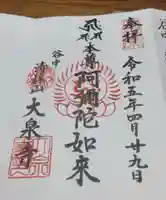 奉拝
令和五年四月廿九日
本尊阿彌陀如来
谷中
大泉寺